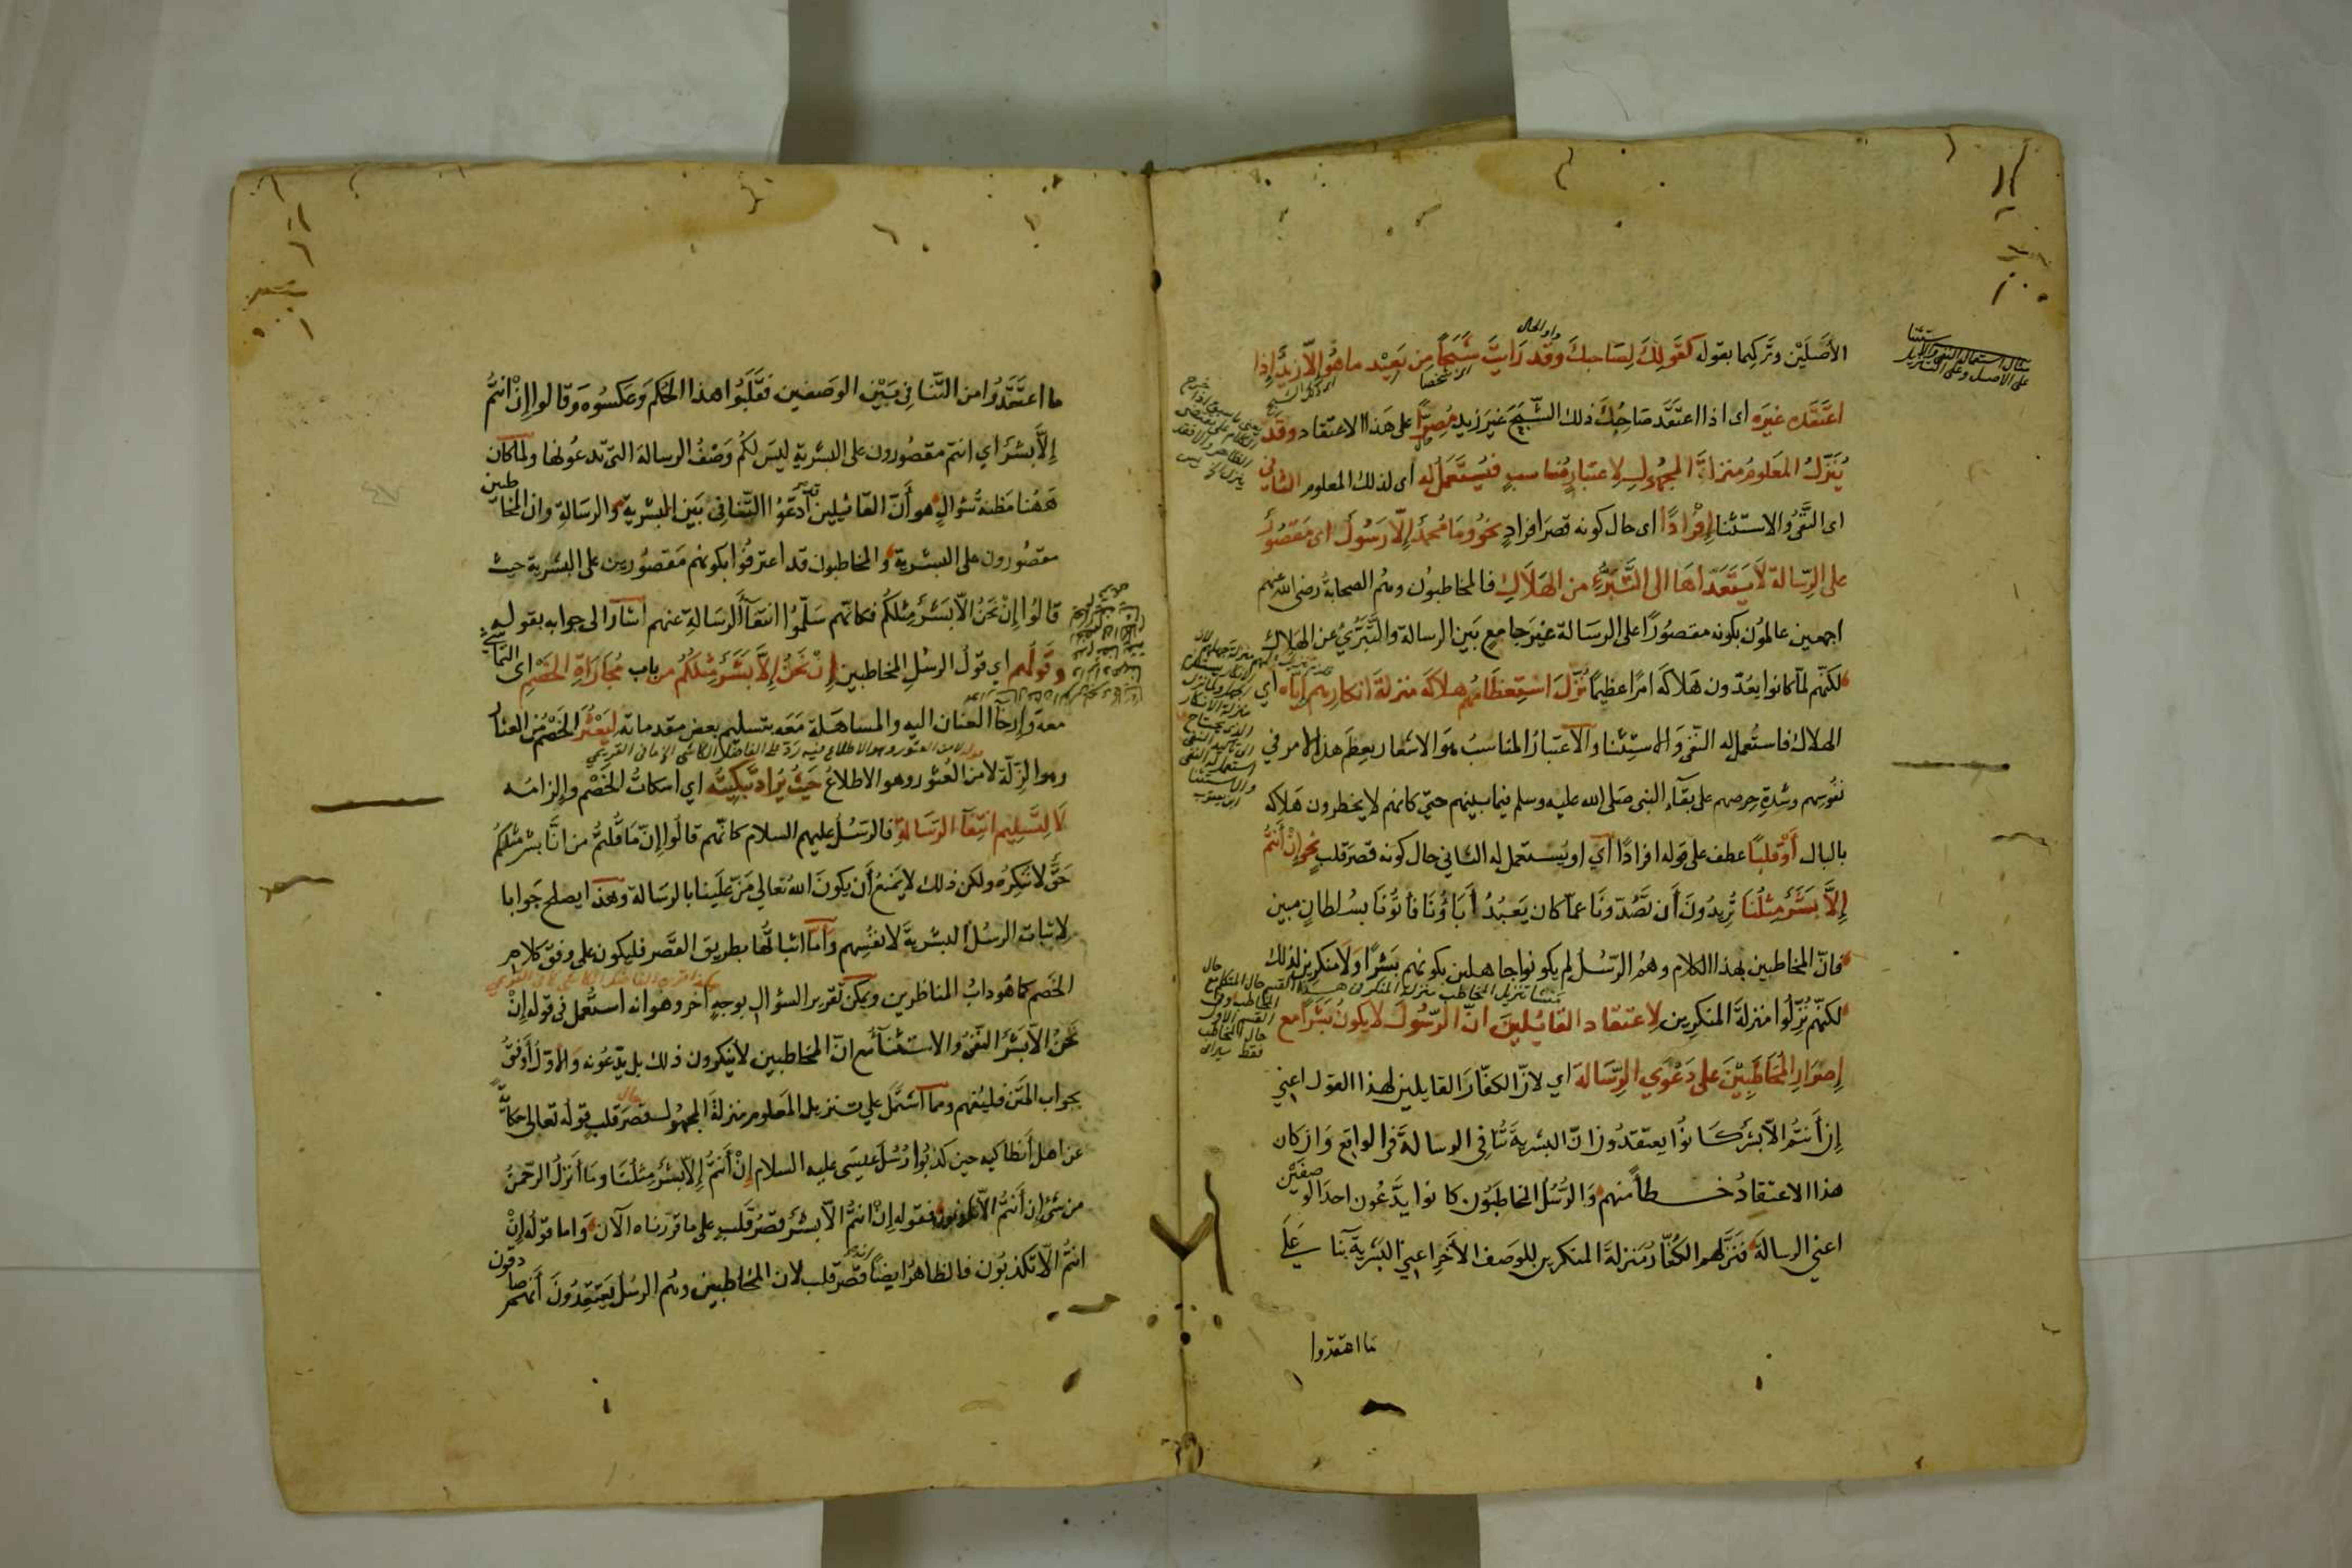 الأَصْلَيْن وتَرْكِهما بقوله كقَولِكَ لِصَاحبكَ وقَد رَايتَ شَبَحاً مِن بَعِيْد ماهُو اِلّا زيدٌ إِذا
اعتَقَده غَيرَه اى اذا اعتَقَد صَاحِبُكَ ذلك الشَّبَحَ غيرَ زيدٍ مُصِرّاً على هَذا الاعتقاد وقد
يُنَزّلُ المعَلومُ منزلةَ المَجهُولِ لِاعتبارٍ مُناسبٍ فيُستَعمَلُ له أى لذلك المعلوم الثانى
اى النَّفىُ والاستثنا إِفْرادًا اى حال كونه قصرَ افرادٍ نحوُ ومَا مُحمدٌ إلّا رَسُولٌ اى مَقصُورٌ
على الرِّسالة لَا يَتَعَدّاهَا الى التَّبَرُّءِ من الهَلَاكِ فالمخاطبوُن وهُم الصحابةُ رضى الله عنهم
اجمعين عالمُون بكونه مقصُورًا على الرسَالة غيرَ جامعٍ بَين الرسالة والتَّبَرّىُ عن الهلاك
لكنّهم لمّا كانوا يعُدّون هَلاكَه امرًا عظيمًا نُزّلَ اسْتِعظَامُهم هلاكَه منزلةَ انكارهم ايّاه أي
الهلاك فاستُعمل له النّفىُ والاستِثنا والاعتبارُ المناسبُ هو الاشعار بعِظَم هذا الامر في
نفوسهم وشدةِ حِرصهم على بقَاءِ النبى صَلى الله عليه وسلم فيما بينهم حتّى كانهم لا يخطرون هَلاكه
بالبال أوْ قَلبًا عطف على قوله افرادًا أي او يُستعمل له الثانى حال كونه قصرَ قلبٍ نحو إِنْ أنتُم
إِلاَّ بَشَرٌ مِثلُنَا تُرِيدُونَ أَن تَصُدّونَا عمّا كان يَعبُدُ أبَاؤُنَا فأتُونَا بسُلطانٍ مبين
فانّ المخاطبين بهذا الكلام وهُمُ الرّسُلُ لم يكونوا جاهلين بكونهم بَشَرًا ولَا منكرين لذلك
لكنّهم نُزّلُوا منزلةَ المنكرِين لِاعتقاد القائلينَ انّ الرّسُولَ لا يكونُ بَشَرًا مع
إصرَارِ المُخَاطَبِيْنَ على دَعْوَي الرِّسَالةَ اي لانّ الكفّارَ القايلين لهذا القول اعنِي
إن أَنتُم الاّ بشرٌ كانوُا يعتقدُون انّ البشريةَ تُنافى الرسالةَ فى الواقع وَان كان
هذا الاعتقادُ خطأً منهم والرُسُلُ المخاطَبُون كانوا يدَّعُون احدَ الوصفَيْن
اعنِي الرسالةَ فنَزّلهم الكُفّارُ مَنزلةَ المنكرين للوَصف الأخَرِ اعنِي البَشَريّةَ بنا على
ما اعتقدوا
ما اعتَقَدُوا من التّنافى بَيْن الوَصفين فقَلَبُوا هذا الحُكمَ وعَكَسُوه وَقالوا إِنْ انتُم
إِلاَّ بشرٌ اي انتم مقصُورون على البشريةِ ليسَ لكُم وَصْفُ الرسالة التى تدعُونها ولمّا كان
هَهُنا مَظنةُ سُؤالٍ هو أنّ القائِلِين ادعَوا التَنافىَ بَين البشرية والرسَالةِ وان المخاطبين
مقصُورون على البشرية والمخاطبون قد اعترفُوا بكونهم مَقصُورين على البشرية حيث
قالوُا إِنْ نَحنُ اِلاَّ بَشَرٌ مِثلكُم فكانّهم سَلّموُا انتفآ الرسَالةِ عنهم اشار الى جوابه بقوله
وقولُهم اي قولُ الرسُلِ المخاطبين إِنْ نَحْنُ إِلاَّ بَشَرٌ مِثلُكُم من باب مُجَاراةِ الخَصْمِ اى التماشى
معه وإِرخَآ العنان اليه والمساهَلة مَعَه بتسليم بعض مقدماته لِيَعْثُرَ الخَصْمُ من العثار
وهو الزلّة لا من العُثور وهو الاطلاعُ حَيثُ يُرَادُ تَبكِيتُه اي اسكاتُ الخَصْم والزامُه
لَا لِتَسلِيمِ انتِفَآ الرّسَالةِ فالرّسُلُ عليهم السلام كانّهم قالُوا إِنّ مَا قُلتُم من انَّا بشرٌ مثلكُم
حَقٌّ لا نُنكِرُه ولكن ذلك لا يَمنعُ أَن يكونَ الله تعالى مَنّ علَينا بالرسَالة وهذا يصلح جَوابا
لاثبات الرسُلُ البشريةَ لانفُسِهم وأمّا اثباتُها بطريق القَصر فليكون على وفق كلامِ
الخصم كما هُو دابُ المناظرين ويمكن تقرير السؤال بوجهٍ آخر وهو انه استُعمل فى قوله إِنْ
نَحْنُ الاّ بَشرٌ النّفىُ والاستثنآء مع انّ المخاطبين لا يُنكرون ذلك بل يدّعُونه والاوّلُ أوفقُ
بجواب المَتْن فليُفهم ومما اشتمل على تنزيل المَعلوم منزلةَ المجهُول قصرَ قلبٍ قولُه تعالى حكايةً
عن اهل أَنطاكيه حين كَذبُوا رُسُلَ عيسَى عليه السلام إِنْ أَنتُم إِلاّ بشرٌ مِثلُنَا ومَا أَنزلَ الرّحمنُ
من شىٍ إِن أَنتُم الاّ تكذبون فقوله إِنْ انتُم الاّ بشرٌ قصرُ قَلبٍ على ما قررناه الآن وَاما قولُه إِنْ
انتُم الاّ تكذبُون فالظاهرُ ايضًا قصر قلب لان المخاطبين وهُم الرسُل يَعتقِدُونَ أنهم صادقون